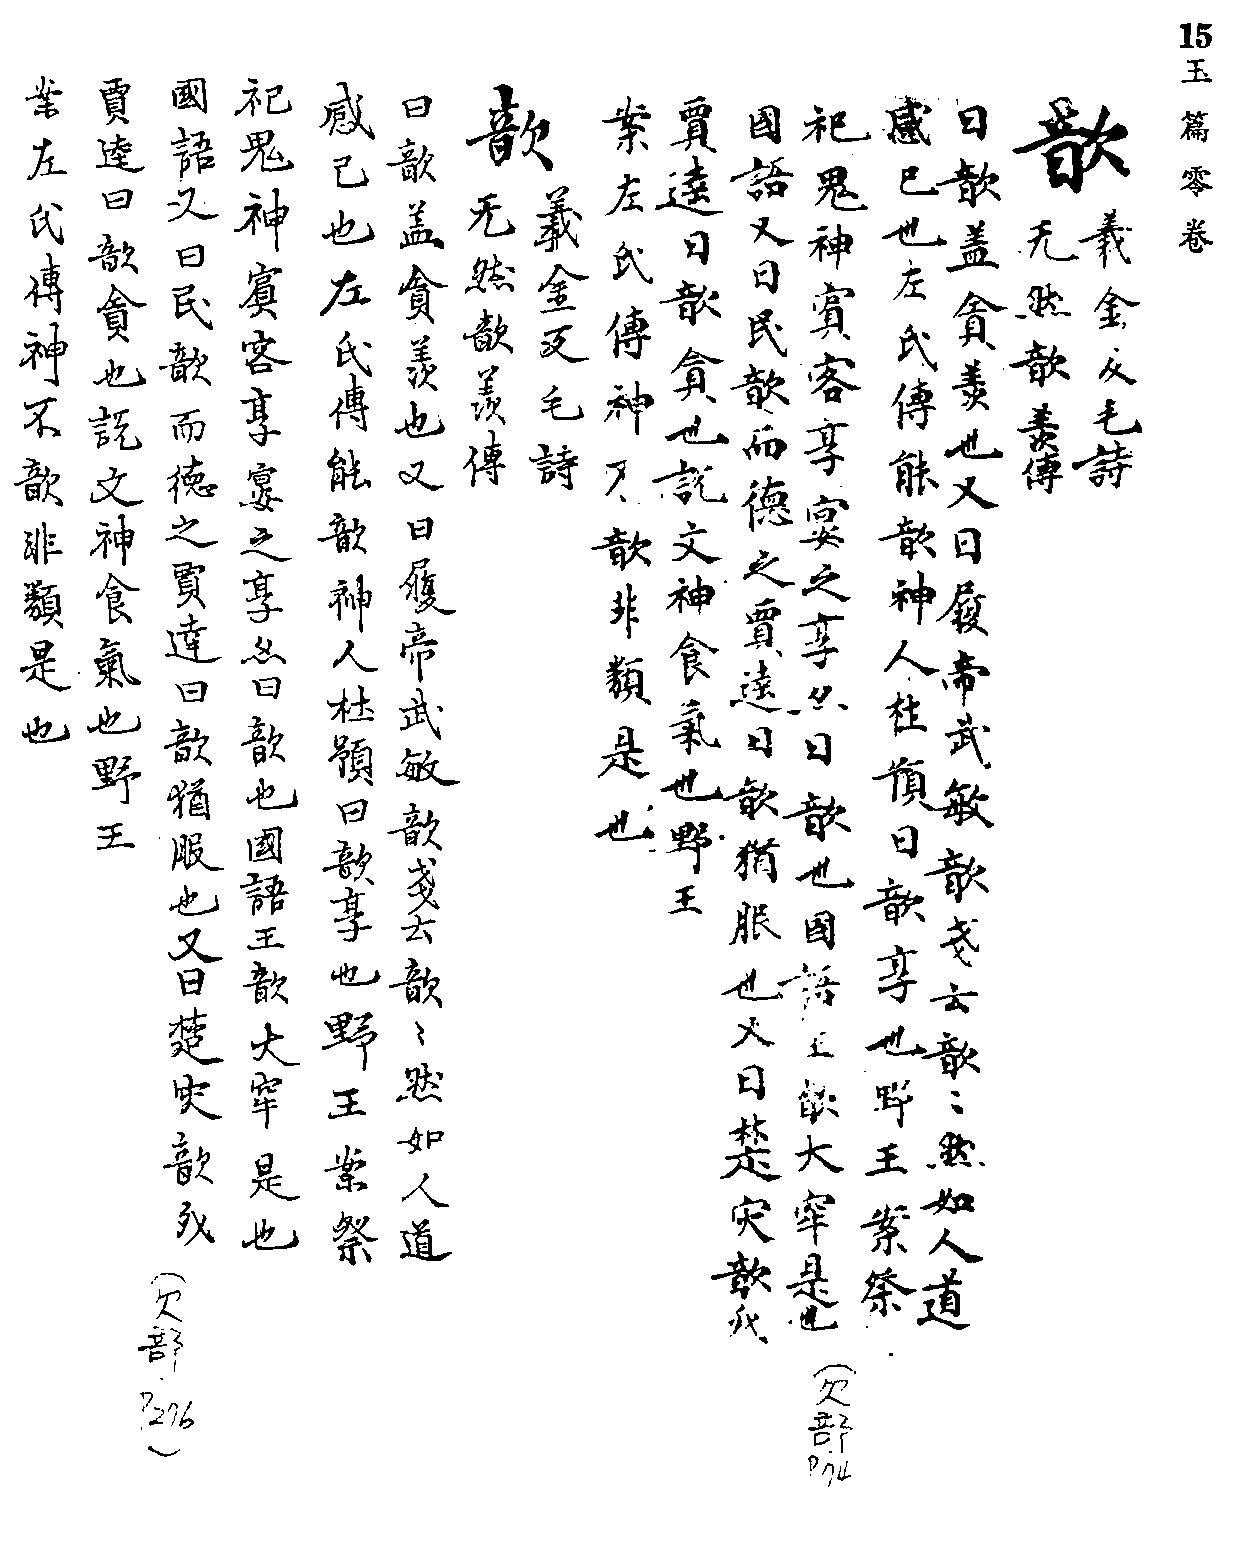 15 玉篇零卷
歆
羲金反毛詩
无然歆羨傳
曰歆盖貪羨也又曰履帝武敏歆戔云歆〻然如人道
感己也左氏傳能歆神人杜預曰歆享也野王案祭
祀鬼神賓客享宴之享亦曰歆也國語王歆大牢是也
國語又曰民歆而德之賈逵曰歆猶服也又曰楚必歆我
賈逵曰歆貪也説文神食氣也野王
案左氏傳神不歆非類是也
(欠部 P74
歆
羲金反毛詩
无然歆羨傳
曰歆盖貪羨也又曰履帝武敏歆戔云歆〻然如人道
感己也左氏傳能歆神人杜預曰歆享也野王案祭
祀鬼神賓客享宴之享亦曰歆也國語王歆大牢是也
國語又曰民歆而德之賈逵曰歆猶服也又曰楚必歆我
賈逵曰歆貪也説文神食氣也野王
案左氏傳神不歆非類是也
(欠部 P276)